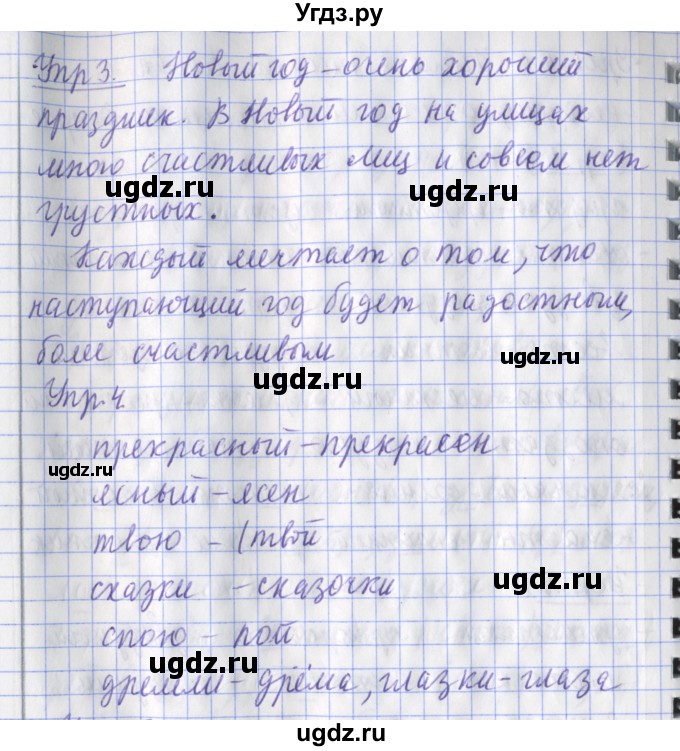 Угдз.ру
Упр 3. Новый год – очень хороший
праздник. В Новый год на улицах
много счастливых лиц и совсем нет
ugdz.ru ugdz.ru
грустных.
Каждый мечтает о том, что
наступающий год будет радостным,
более счастливым
ugdz.ru ugdz.ru
Упр.4
прекрасный – прекрасен
ugdz.ru
ясный – ясен
твою – (твой
сказки – сказочки
ugdz.ru
спою – пой
ugdz.ru
дремли – дрёма, глазки – глаза
ugdz.ru ugdz.ru